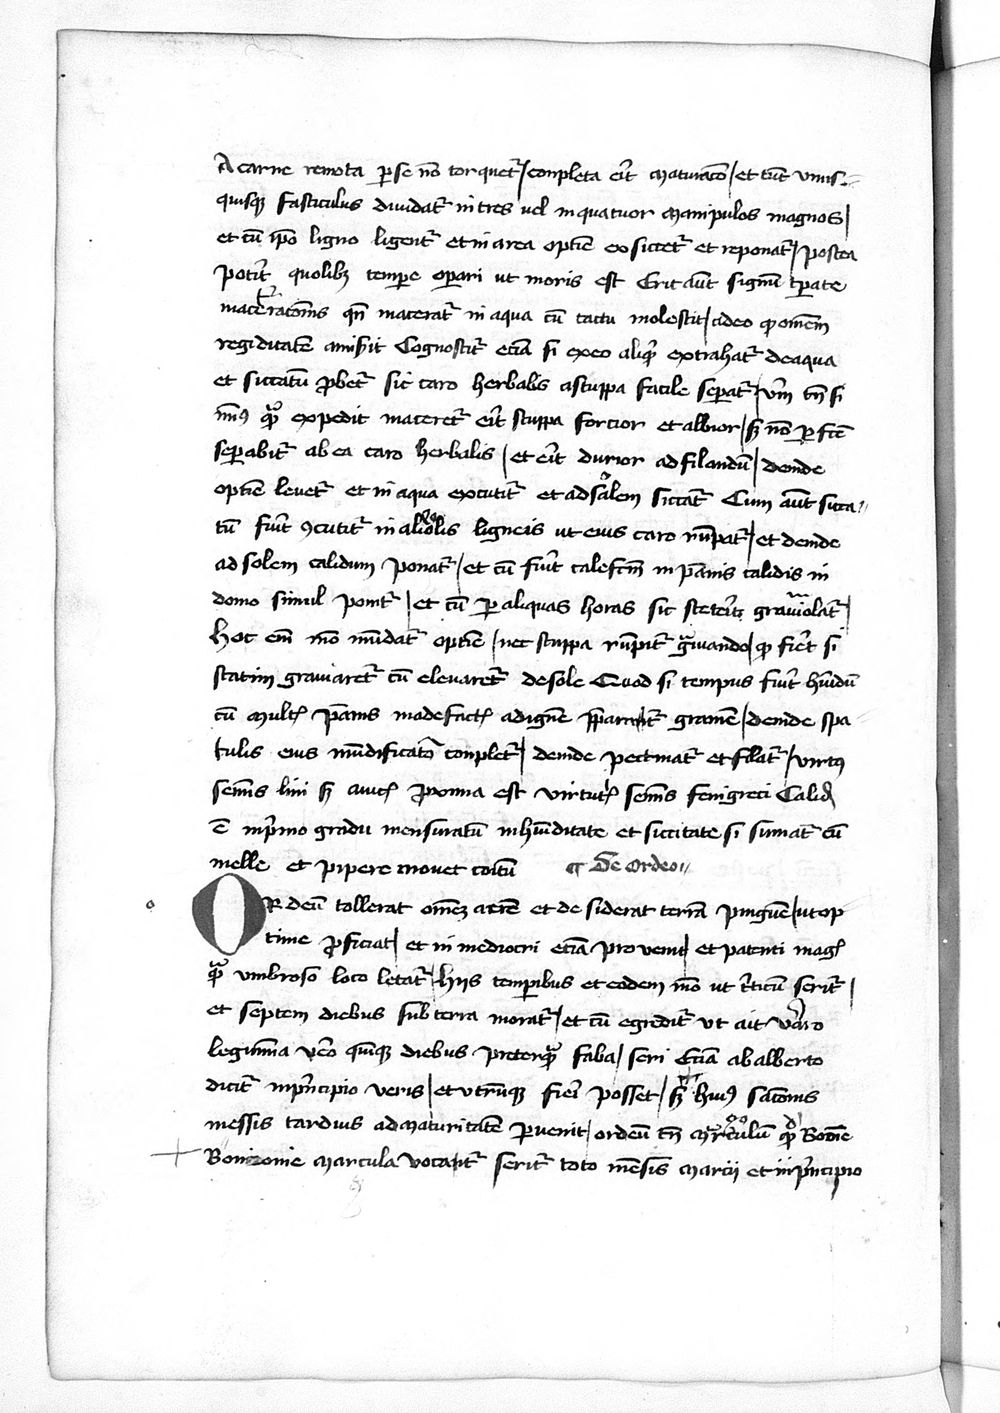 A carne remota ꝑ se nō torquet᷑ / conpleta eīt maturacō / et tūc vnus-
quisqȝ fasticulus diuidat᷑ in tres uel in quatuor manipulos magnos /
et cū ip̄o ligno ligent᷑ et in area optīe exsiccet᷑ et reponat᷑ / postea
poti͛t quolibȝ tempe operari ut moris est Erit aūt signū tꝑate
maceracōnis qn̄ macerat᷑ in aqua cū tactu molescit / adeo ꝙ om̄em
regiditatē amis̄it Cognoscit᷑ eciā si ex eo aliqd̄ extrahat᷑ de aqua
et siccatū ꝓbet᷑ sic caro herbalis a stuppa facile seꝑat᷑ / vm̄ tn̄ si
mīꝰ qͣꝫ expedit maceret᷑ eīt stuppa forcior et albior / sꝫ nō ꝑfc̄e
seꝑabit᷑ ab ea caro herbalis / et eīt durior ad filandū / deinde
optīe leuet᷑ et in aqua excutit᷑ et ad solem siccat᷑ Cum aūt sicca-
tū fuīt ꝯcutit᷑ in aliolis ligneis ut eius caro rūpat᷑ / et deinde
ad solem calidum ponat᷑ / et cū fuīt calefcm̄ in pānis calidis in
domo simul ponit᷑ / et cū ꝑ aliquas horas sic stete͛it gramolat᷑ /
Hoc em̄ mō mūdat᷑ optīe / nec stuppa rūpit᷑ gͣmando / ꝙ fie͛t si
statim gramaret᷑ cū eleuaret᷑ de sole Quod si tempus fuīt hūidū
cū multꝭ pānis madefactꝭ ad ignē p̄parant᷑ gramē / deinde spa-
tulis eius mūdificatō conplet᷑ / deinde pectinat᷑ et filat᷑ / virtꝰ
semīs lini sꝫ auicꝭ ꝓxima est virtutꝭ semīs fenigreci Calidꝫ
ē in p͛mo gradu mensuratū in hūiditate et siccitate si sumat᷑ cū
melle et pipere mouet coitū ¶ De Ordeo
ORdeū tollerat om̄eȝ aerē et desiderat terrā pinguē / ut op
time ꝓficiat / et in mediocri eciā prouenit / et patenti magꝭ
qͣꝫ vmbroso loco letat᷑ / Hijs temporibus et eodem mō ut t͛ticū serit᷑ /
et septem diebus sub terra morat᷑ / et cū egredit᷑ vt ait varro
legumīa ve͛o quīqȝ diebus preterqͣꝫ faba / seri Eciā ab alberto
dicit᷑ in p͛ncipio veris / et vtrūqȝ fieri posset / sꝫ huiꝰ sacōnis
messis tardius ad maturitatē ꝑuenit / ordeū tn̄ marculū qd̄ Bonōie
Bonizonie marcula vocat᷑ serit᷑ toto mēsis marcij et in p͛ncipio